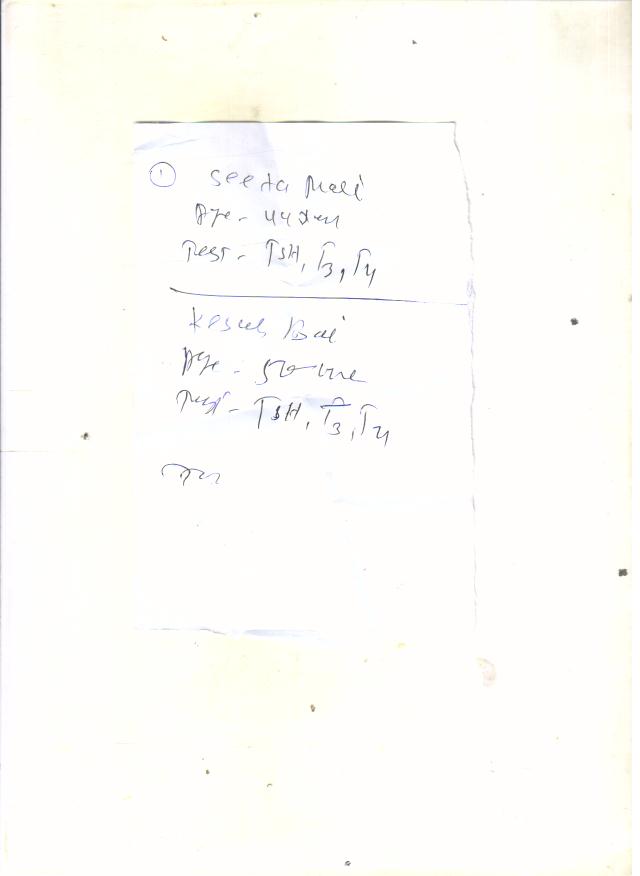 ① Seeta Mali
Age - 44 year
Test - TSH, T3, T4
Kesar Bai
Age - 50
Test - TSH, T3, T4